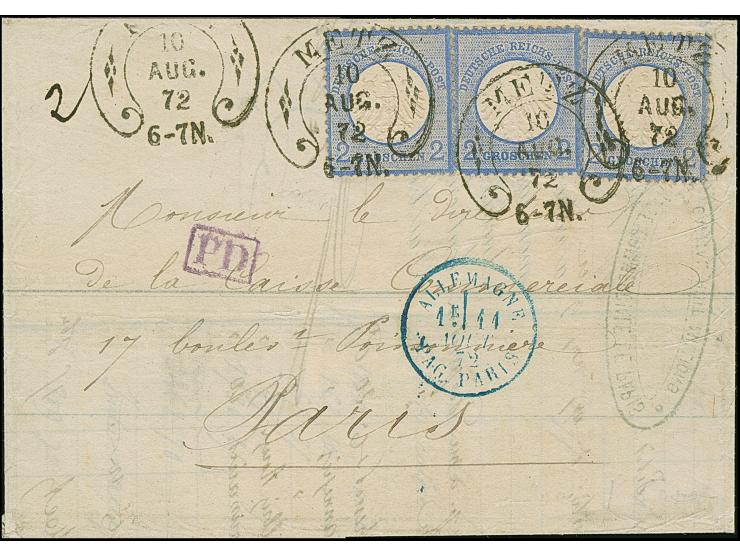 10
AUG.
72
6-7N.
METZ
10
AUG.
72
6-7N.
METZ
10
AUG.
72
6-7N.
METZ
10
AUG.
72
6-7N.
DEUTSCHE REICHS-POST
2 GROSCHEN 2
DEUTSCHE REICHS-POST
2 GROSCHEN
DEUTSCHE REICHS-POST
2 GROSCHEN 2
2
Monsieur le
PD
de la Caisse Commerciale
ALLEMAGNE
1E 11
AOUT
72
PAG. PARIS
17 boulev. Poissonnière
Paris